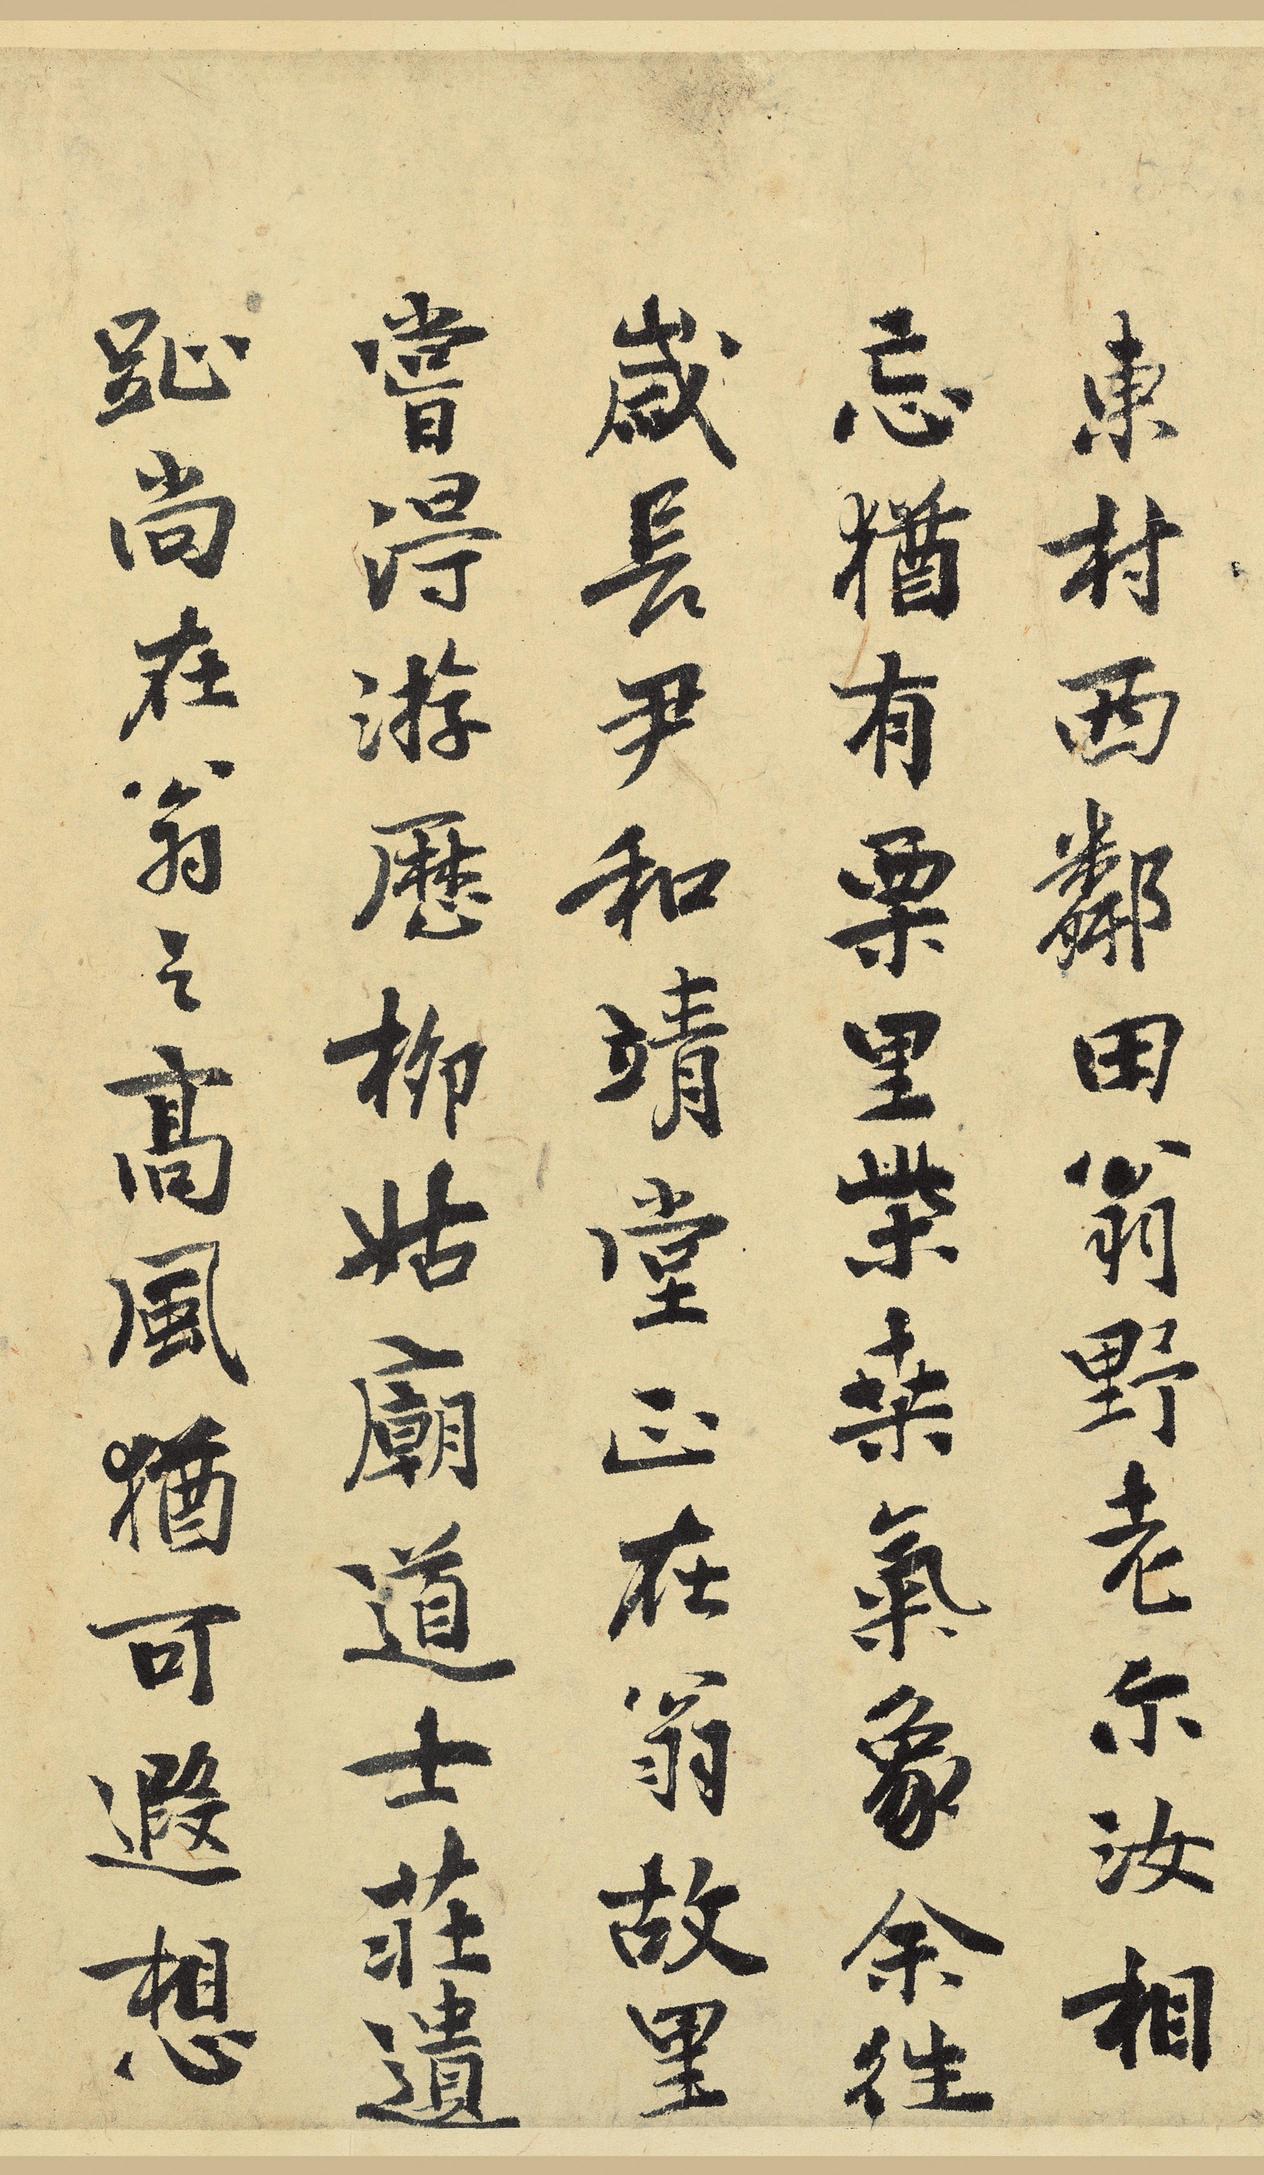 東村西鄰田翁野老尔汝相
忘猶有栗里柴桑氣象余往
歲長尹和靖堂正在翁故里
嘗淂游歷柳姑廟道士莊遺
趾尚在翁之髙風猶可遐想